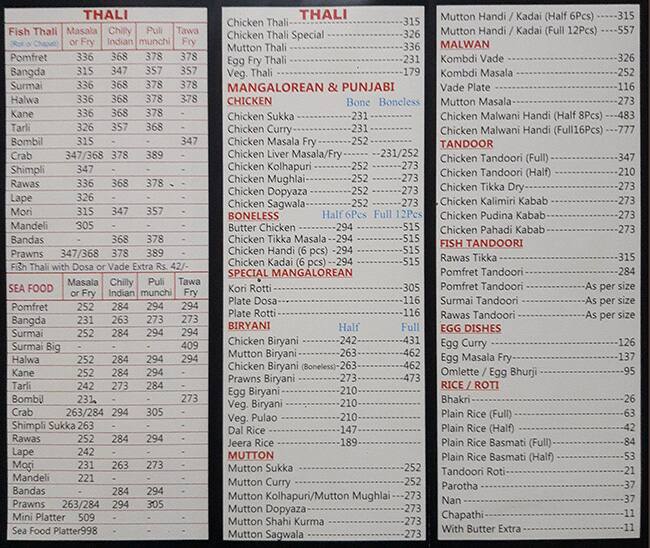 THALI
Fish Thali (Roti or Chapati) Masala or Fry Chilly Indian Puli munchi Tawa Fry
Pomfret 336 368 378 378
Bangda 315 347 357 357
Surmai 336 368 378 378
Halwa 336 368 378 378
Kane 336 368 378 -
Tarli 326 357 368 -
Bombil 315 - - 347
Crab 347/368 378 389 -
Shimpli 347 - - -
Rawas 336 368 378 -
Lape 326 - - -
Mori 315 347 357 -
Mandeli 305 - - -
Bandas - 368 378 -
Prawns 347/368 378 389 -
Fish Thali with Dosa or Vade Extra Rs. 42/-
SEA FOOD Masala or Fry Chilly Indian Puli munchi Tawa Fry
Pomfret 252 284 294 294
Bangda 231 263 273 273
Surmai 252 284 294 294
Surmai Big - - - 409
Halwa 252 284 294 294
Kane 252 284 294 -
Tarli 242 273 284 -
Bombil 231 - - 273
Crab 263/284 294 305 -
Shimpli Sukka 263 - - -
Rawas 252 284 294 -
Lape 242 - - -
Mori 231 263 273 -
Mandeli 221 - - -
Bandas - 284 294 -
Prawns 263/284 294 305 -
Mini Platter 509 - - -
Sea Food Platter 998 - - -
THALI
Chicken Thali 315
Chicken Thali Special 326
Mutton Thali 336
Egg Fry Thali 231
Veg. Thali 179
MANGALOREAN & PUNJABI
CHICKEN Bone Boneless
Chicken Sukka 231
Chicken Curry 231
Chicken Masala Fry 252
Chicken Liver Masala/Fry 231/252
Chicken Kolhapuri 252 273
Chicken Mughlai 252 273
Chicken Dopyaza 252 273
Chicken Sagwala 252 273
BONELESS Half 6Pcs Full 12Pcs
Butter Chicken 294 515
Chicken Tikka Masala 294 515
Chicken Handi (6 pcs) 294 515
Chicken Kadai (6 pcs) 294 515
SPECIAL MANGALOREAN
Kori Rotti 305
Plate Dosa 116
Plate Rotti 116
BIRYANI Half Full
Chicken Biryani 242 431
Mutton Biryani 263 462
Chicken Biryani (Boneless) 263 462
Prawns Biryani 273 473
Egg Biryani 210
Veg. Biryani 210
Veg. Pulao 210
Dal Rice 147
Jeera Rice 189
MUTTON
Mutton Sukka 252
Mutton Curry 252
Mutton Kolhapuri/Mutton Mughlai 273
Mutton Dopyaza 273
Mutton Shahi Kurma 273
Mutton Sagwala 273
Mutton Handi / Kadai (Half 6Pcs) 315
Mutton Handi / Kadai (Full 12Pcs) 557
MALWAN
Kombdi Vade 326
Kombdi Masala 252
Vade Plate 116
Mutton Masala 273
Chicken Malwani Handi (Half 8Pcs) 483
Chicken Malwani Handi (Full16Pcs) 777
TANDOOR
Chicken Tandoori (Full) 347
Chicken Tandoori (Half) 210
Chicken Tikka Dry 273
Chicken Kalimiri Kabab 273
Chicken Pudina Kabab 273
Chicken Pahadi Kabab 273
FISH TANDOORI
Rawas Tikka 315
Pomfret Tandoori 284
Pomfret Tandoori As per size
Surmai Tandoori As per size
Rawas Tandoori As per size
EGG DISHES
Egg Curry 126
Egg Masala Fry 137
Omlette / Egg Bhurji 95
RICE / ROTI
Bhakri 26
Plain Rice (Full) 63
Plain Rice Basmati (Full) 84
Plain Rice Basmati (Half) 53
Tandoori Roti 21
Parotha 37
Nan 37
Chapathi 11
With Butter Extra 11